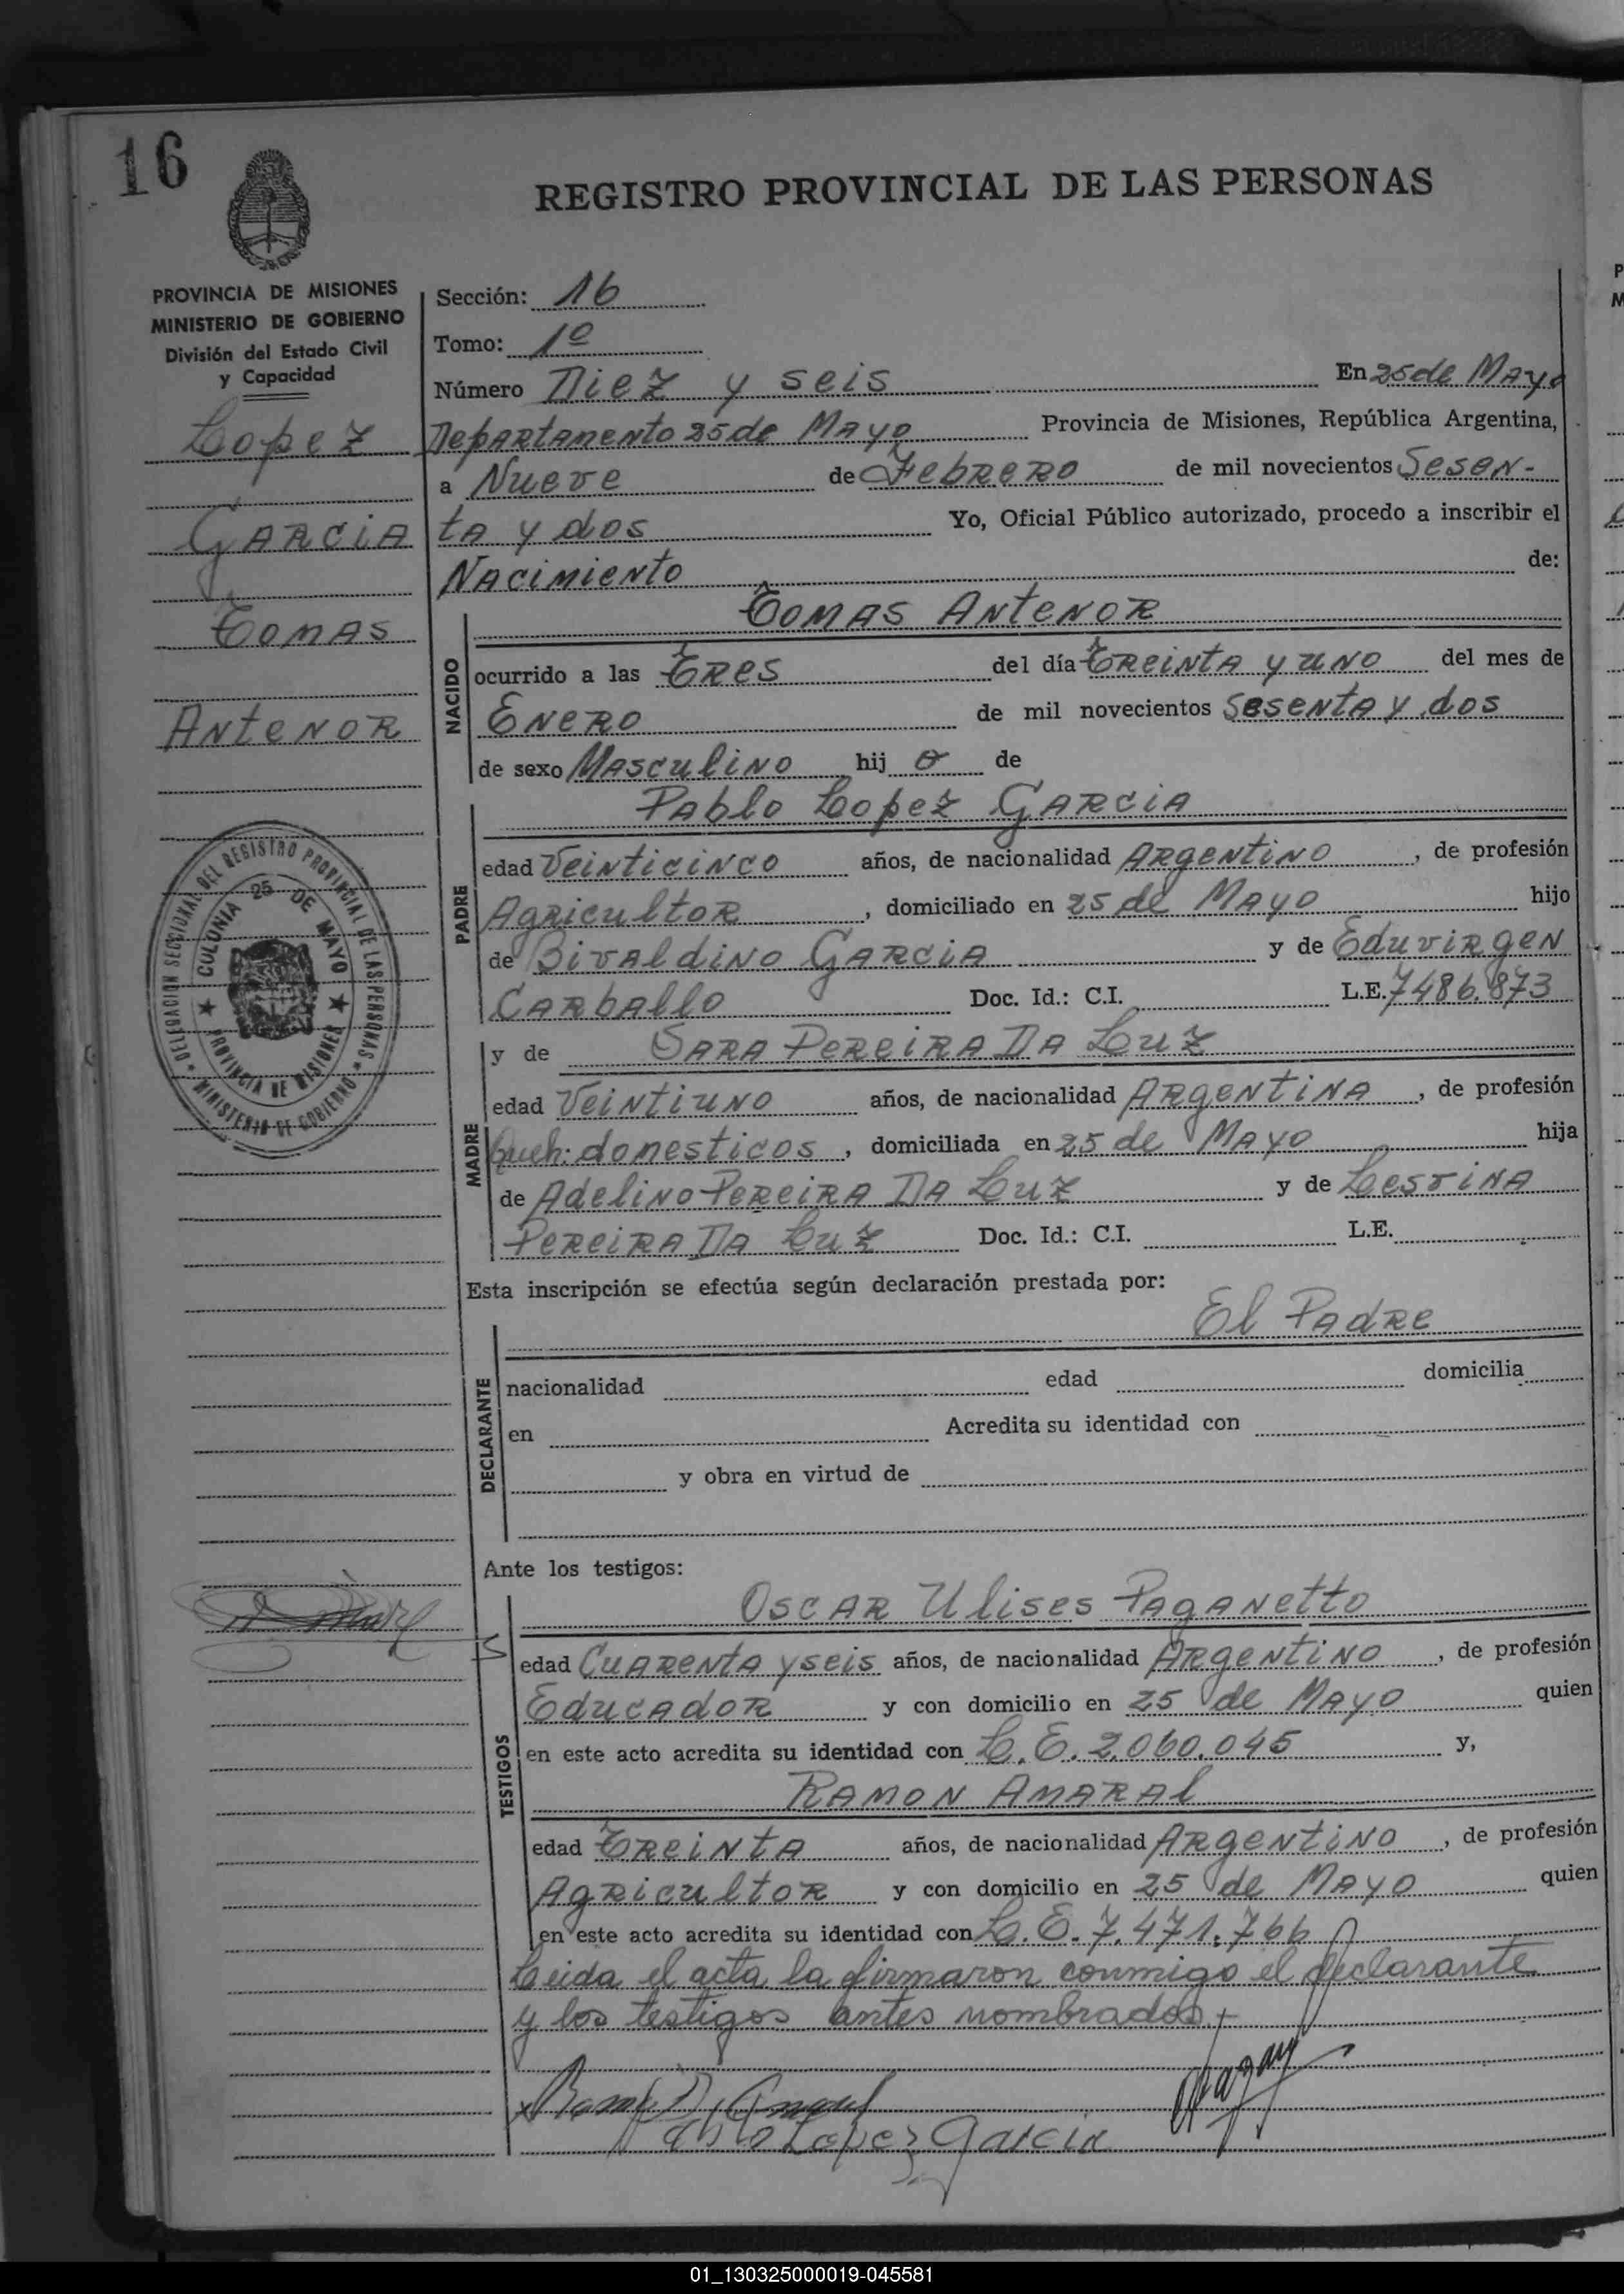 16
REGISTRO PROVINCIAL DE LAS PERSONAS
PROVINCIA DE MISIONES
MINISTERIO DE GOBIERNO
División del Estado Civil
y Capacidad
Lopez
GARCIA
TOMAS
ANTENOR
DELEGACION SECCIONAL DEL REGISTRO PROVINCIAL DE LAS PERSONAS
COLONIA 25 DE MAYO
PROVINCIA DE MISIONES
MINISTERIO DE GOBIERNO
Sección: 16
Tomo: 1º
Número Diez y seis En 25 de MAYO
DepARtAmeNto 25 de MAYO Provincia de Misiones, República Argentina,
a Nueve de FebReRo de mil novecientos SeseN-
tA y dos Yo, Oficial Público autorizado, procedo a inscribir el
NAcimieNto de:
TOMAS ANteNOR
NACIDO
ocurrido a las TRes del día TReiNtA y uNo del mes de
ENeRo de mil novecientos SeseNtA y dos
de sexo MAsculiNo hij o de
PAblo Lopez GARCIA
PADRE
edad VeiNticiNco años, de nacionalidad ARgeNtiNo, de profesión
AgRicultoR, domiciliado en 25 de MAYO hijo
de BivAldiNo GARCIA y de EduviRgeN
CARbAllo Doc. Id.: C.I. L.E. 7486.873
y de SARA PeReiRA DA Luz
MADRE
edad VeiNtiuNo años, de nacionalidad ARgeNtiNA, de profesión
Queh. domesticos, domiciliada en 25 de MAYO hija
de AdeliNo PeReiRA DA Luz y de
PeReiRA DA Luz Doc. Id.: C.I. L.E.
Esta inscripción se efectúa según declaración prestada por:
El PAdRe
DECLARANTE
nacionalidad edad domicilia
en Acredita su identidad con
y obra en virtud de
Ante los testigos:
OscAR Ulises PAgANetto
TESTIGOS
edad CuAReNtA y seis años, de nacionalidad ARgeNtiNo, de profesión
EducAdoR y con domicilio en 25 de MAYO quien
en este acto acredita su identidad con L.E. 2.060.045 y,
RAMON AMARAl
edad TReiNtA años, de nacionalidad ARgeNtiNo, de profesión
AgRicultoR y con domicilio en 25 de MAYO quien
en este acto acredita su identidad con L.E. 7.471.766
Leida el acta la firmaron conmigo el declarante
y los testigos antes nombrados.-
Pablo Lopez Garcia
01_130325000019-045581